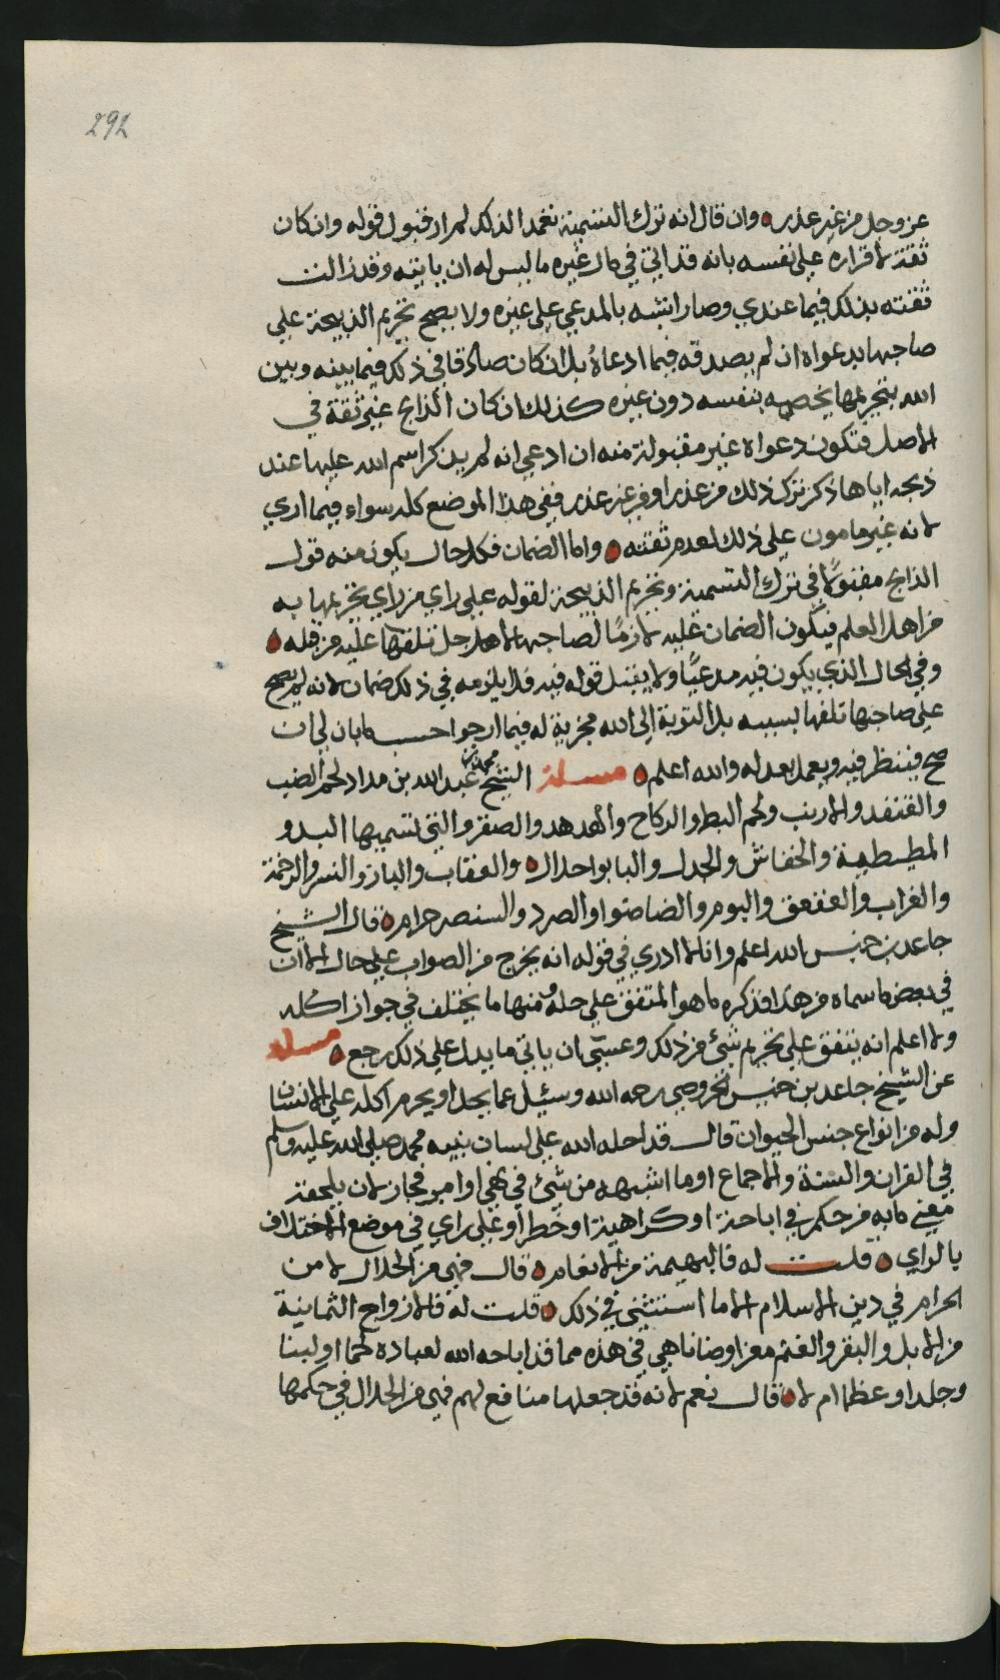 292
عز وجل من غير عذر وان قال انه ترك التسمية تعمدا لذلك لم ار قبول قوله وان كان
ثقة لاقراره على نفسه بانه قد اتى في مال غيره ما ليس له ان ياتيه وقد زالت
ثقته بذلك فيما عندي وصار اشبه بالمدعي على غيره ولا يصح تحريم الذبيحة على
صاحبها بدعواه ان لم يصدقه فيما ادعاه بل ان كان صادقا في ذلك فيما بينه وبين
الله بتحريمها يخصه بنفسه دون غيره كذلك ان كان الذابح غير ثقة في
الاصل فتكون دعواه غير مقبولة منه ان ادعى انه لم يذكر اسم الله عليها عند
ذبحه اياها ذكر ترك ذلك من عذر او من غير عذر ففي هذا الموضع كله سواء فيما ارى
لانه غير مامون على ذلك لعدم ثقته واما الضمان فكل حال يكون منه قول
الذابح مقبولا في ترك التسمية وتحريم الذبيحة لقوله على راي من راى تحريمها به
من اهل العلم فيكون الضمان عليه لازما لصاحبها لاهل رجل تلفها عليه من قبله
وفي الحال الذي يكون فيه مدعيا ولا يقبل قوله فيه فلا يلزمه في ذلك ضمان لانه لم يصح
على صاحبها تلفها بسببه بل التوبة الى الله مجزية له فيما ارجو احسب ما بان لي ان
صح فينظر فيه ويعمل بعدله والله اعلم مسئلة الشيخ محمد بن عبد الله بن مداد لحم الضب
والقنفد والارنب ولحم البط والدكاح والهدهد والصقر والتي تسميها البدو
المطيطية والخفاش والحدل والبابوا حلال والعقاب والباز والنسر والرخمة
والغراب والعقعق والبوم والضاضوا والصرد والسنصر حرام قال الشيخ
جاعد بن خميس الله اعلم وانا لا ادري في قوله انه يخرج من الصواب على حال الا ان
في بعض ما سماه من هذا فذكره ما هو المتفق على حله ومنها ما يختلف في جواز اكله
ولا اعلم انه يتفق على تحريم شئ من ذلك وعسى ان ياتي ما يدل على ذلك رجع مسئلة
عن الشيخ جاعد بن خميس الخروصي رحمه الله وسئل عما يحل او يحرم اكله على الانسان
وله من انواع جنس الحيوان قال قد احله الله على لسان نبيه محمد صلى الله عليه وسلم
في القران والسنة والاجماع او ما اشبهه من شئ في نهي او امر فجاز لان يلحقه
معنى ما به من حكم في اباحة او كراهية او خطر او على راي في موضع الاختلاف
بالراي قلت له فالبهيمة من الانعام قال فهي من الحلال لا من
الحرام في دين الاسلام الا ما استثني في ذلك قلت له فالازواج الثمانية
من الابل والبقر والغنم معزا وضانا هي في هذه مما قد اباحه الله لعباده لحما او لبنا
وجلدا وعظما ام لا قال نعم لانه قد جعلها منافع لهم فهي من الحلال في حكمها